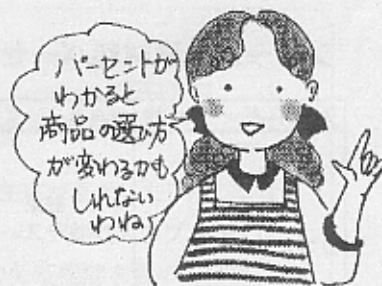 パーセントが
わかると
商品の選び方
が変わるかも
しれない
わね